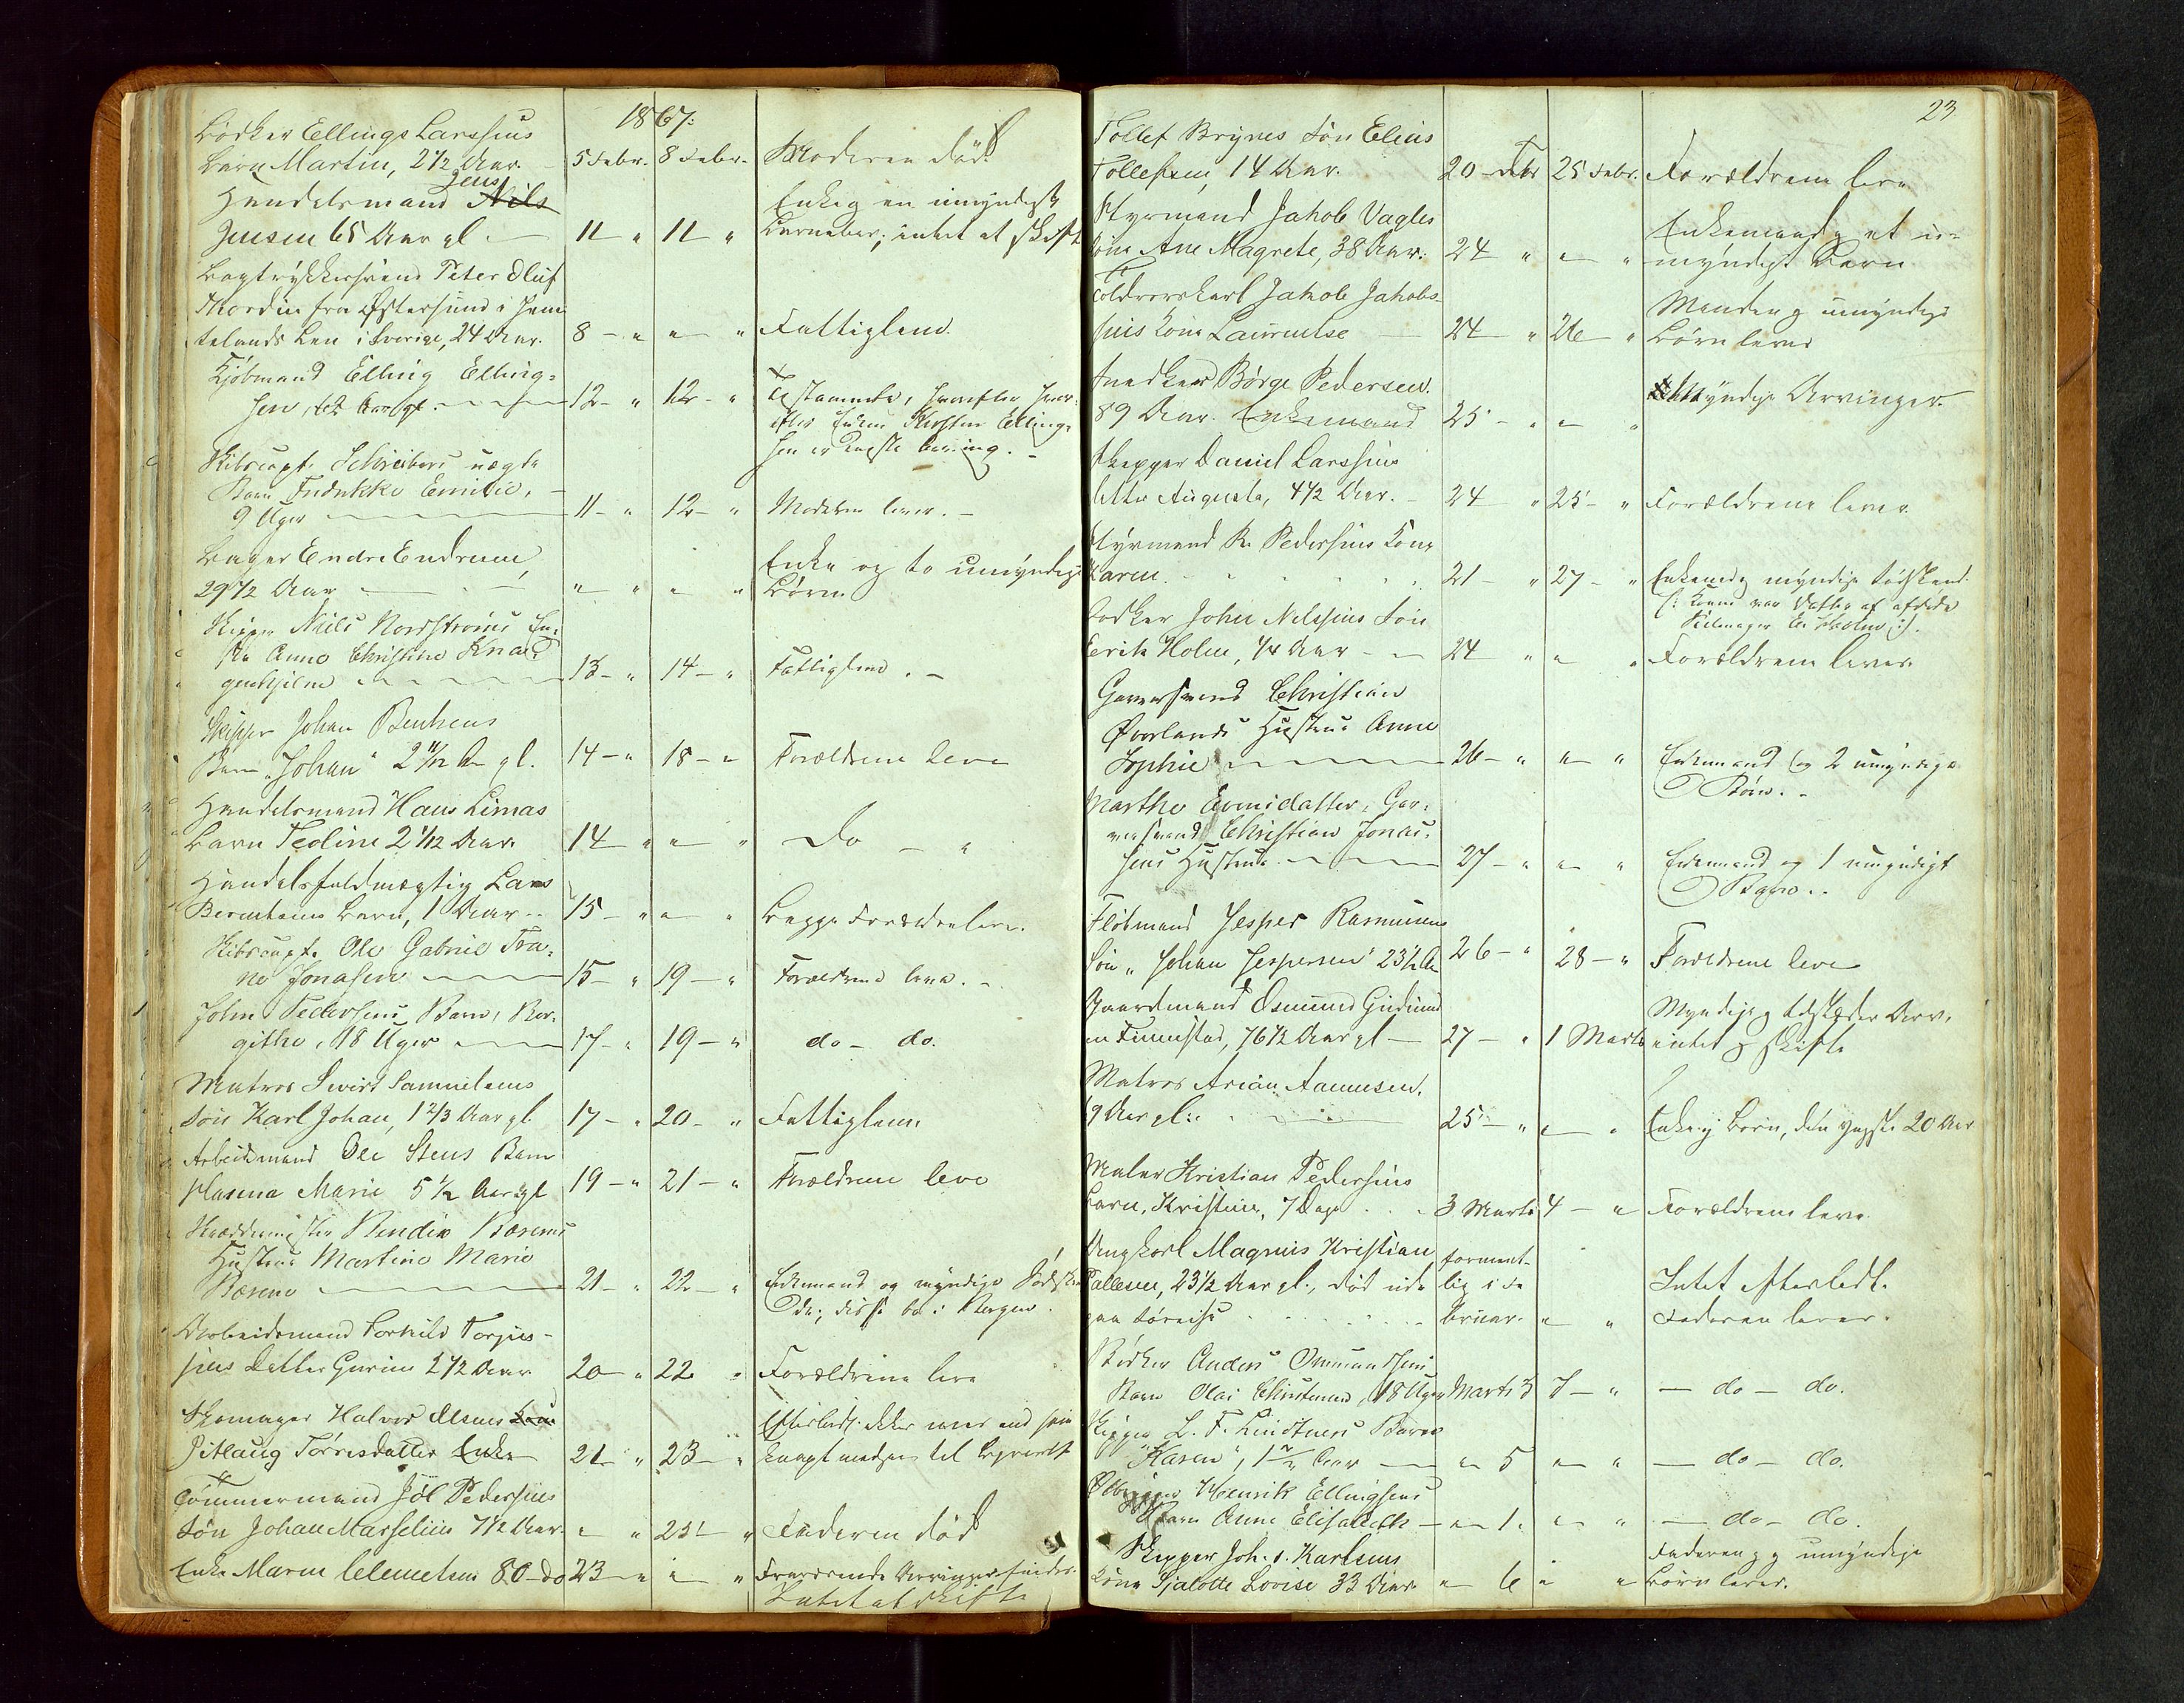 1867:
Bødker Ellings Larssens
Barn Martin, 2 1/2 Aar. 5 Febr. 8 Febr. Moderen død
Handelsmand Jens Nils
Jensen 65 Aar gl. 11 " 11 " Enke og en umyndigt
Barnebarn; intet at skifte
Bogtrykkersvend Peter Oluf
Nordin fra Østersund i Jem
telands Len i Sverige, 24 Aar. 8 - " " " Fattiglem.
Kjøbmand Elling Elling-
sen, 62 Aar gl. 12 - " 12 - " Testamente, hvorefter
Enken Kirsten Elling-
sen er eneste Arving.
Skibscapt. Schreibers uægte
Barn Fredrikke Emilie,
9 Uger 11 - " 12 - " Moderen lever.
Bager Endre Endresen,
29 1/2 Aar " " " " Enke og to umyndige
Børn
Skipper Niels Nordstrøms En-
ke Anne Christine
13 - " 14 - " Fattiglem.
Skipper Johan Bentsens
Barn "Johan" 2 11/12 Aar gl. 14 - " 18 - " Forældrene leve
Handelsmand Hans Limas
Barn Teoline 2 1/12 Aar. 14 " " " Do - "
Handelsfuldmægtig Lars
Berentsens Barn, 1 Aar 15 - " " " Begge Forældre leve.
Skibscapt. Ole Gabriel Tra-
ne Jonasen 15 - " 19 - " Forældrene leve.
John Pedersens Barn, Ber-
githe, 18 Uger 17 - " 19 - " do - do.
Matros Sivert Samuelsens
Søn Karl Johan, 1 2/3 Aar gl. 17 - " 20 - " Fattiglem.
Arbeidsmand Ole Stens Barn
Marie 5 1/2 Aar gl 19 - " 21 - " Forældrene leve
Skræddermester
Hustru Martine Marie
21 - " 22 - " Enkemand og myndige Sødsken
de; disse bo i Bergen.
Arbeidsmand Torkild Torjus-
sens Datter Gurine 2 1/2 Aar 20 - " 22 " Forældrene leve
Skomager Halvor Olsens
Sitlaug Tørresdatter Enke 21 " 23 - " Efterladt ikke mer end
knapt medgaar til Begravelse
Tømmermand Jøl Pedersens
Søn Johan Marselius 7 1/2 Aar. " " 25 - " Faderen død
Enke Maren Clemetsen 80 - do 23 - " " " Fraværende Arvinger findes.
Intet at skifte
23
Tollef Brynes Søn Elius
Tollefsen, 14 Aar. 20 - Febr 25 Febr. Forældrene leve
Styrmand Jakob Vagles
Kone Ane Magrete, 38 Aar. 24 " " " Enkemand og et u-
myndigt Barn
Toldrorskarl Jakob Jakob-
sens Kone Laurentse 24 " 26 " Manden og umyndige
Børn lever
Snedker Børge Pedersen
89 Aar. Enkemand 25 - " " " Myndige Arvinger.
Skipper Daniel Larssens
Datter Augusta, 4 1/2 Aar. - 24 " 25 - " Forældrene lever
Styrmand R. Pedersens Kone
Karen. 21 - " 27 - " Enkemd. og myndige Sødskend.
(: Konen var Datter af afdøde
Holm :).
Bødker John Nilssens Søn
Erik Holm, 1/4 Aar - 24 " " " Forældrene lever.
Garversvend Christian
Øverlands Hustru Anne
Sophie 26 - " " " Enkemand og 2 umyndige
Børn.
Marthe Evensdatter, Gar-
versvend Christian Jonas-
sens Hustru 27 - " " " Enkemand og 1 umyndigt
Barn.
Fløtmand Jesper Rasmussens
Søn "Johan Jespersen" 23 1/2 Aar 26 - " 28 - " Forældrene leve
Gaardmand Osmund Gudmund
sen Finnestad, 76 1/2 Aar gl - 27 - " 1 Marts Myndige og Arv.
intet at skifte
Matros Arian Aanensen.
Aar gl: 25 - " " " Enke og Børn, den yngste 20 Aar
Maler Kristian Pedersens
Barn, Kristine, 7 Dage 3 Marts 4 - " Forældrene leve
Ungkarl Magnus Kristian
Tallesen, 23 1/2 Aar gl., død ude
paa Søreise forment-
lig i Fe
bruar. " " Intet efterladt.
Faderen lever.
Bødker Anders Ommundsens
Barn Olai 18 Uger Marts 3 7 - " - do - do.
Skipper L. F. Lindtners Barn
"Karen", 1 Aar " 5 " " - do - do.
Henrik Ellingsens
Barn Anne Elisabeth - " 1. " " - do - do.
Skipper Joh. J. Karlsens
Kone Sjalotte Lovise 33 Aar. " 6 " " Faderen og umyndige
Børn lever.